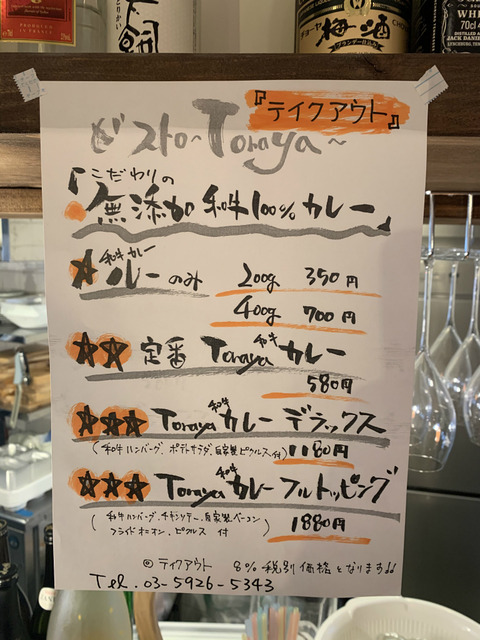 とりかい
梅酒
JACK DANIEL
『テイクアウト』
ビストロ~Toraya~
「こだわりの
無添加 和牛100% カレー」
★ 和牛カレー
ルーのみ 200g 350円
400g 700円
★★ 定番 Toraya 和牛カレー
580円
★★★ Toraya 和牛カレー デラックス
(和牛ハンバーグ、ポテトサラダ、自家製ピクルス付) 1180円
★★★ Toraya 和牛カレー フルトッピング
(和牛ハンバーグ、チキンソテー、自家製ベーコン
フライドオニオン、ピクルス 付) 1880円
◎ テイクアウト 8% 税別価格となります!!
Tel. 03-5926-5343